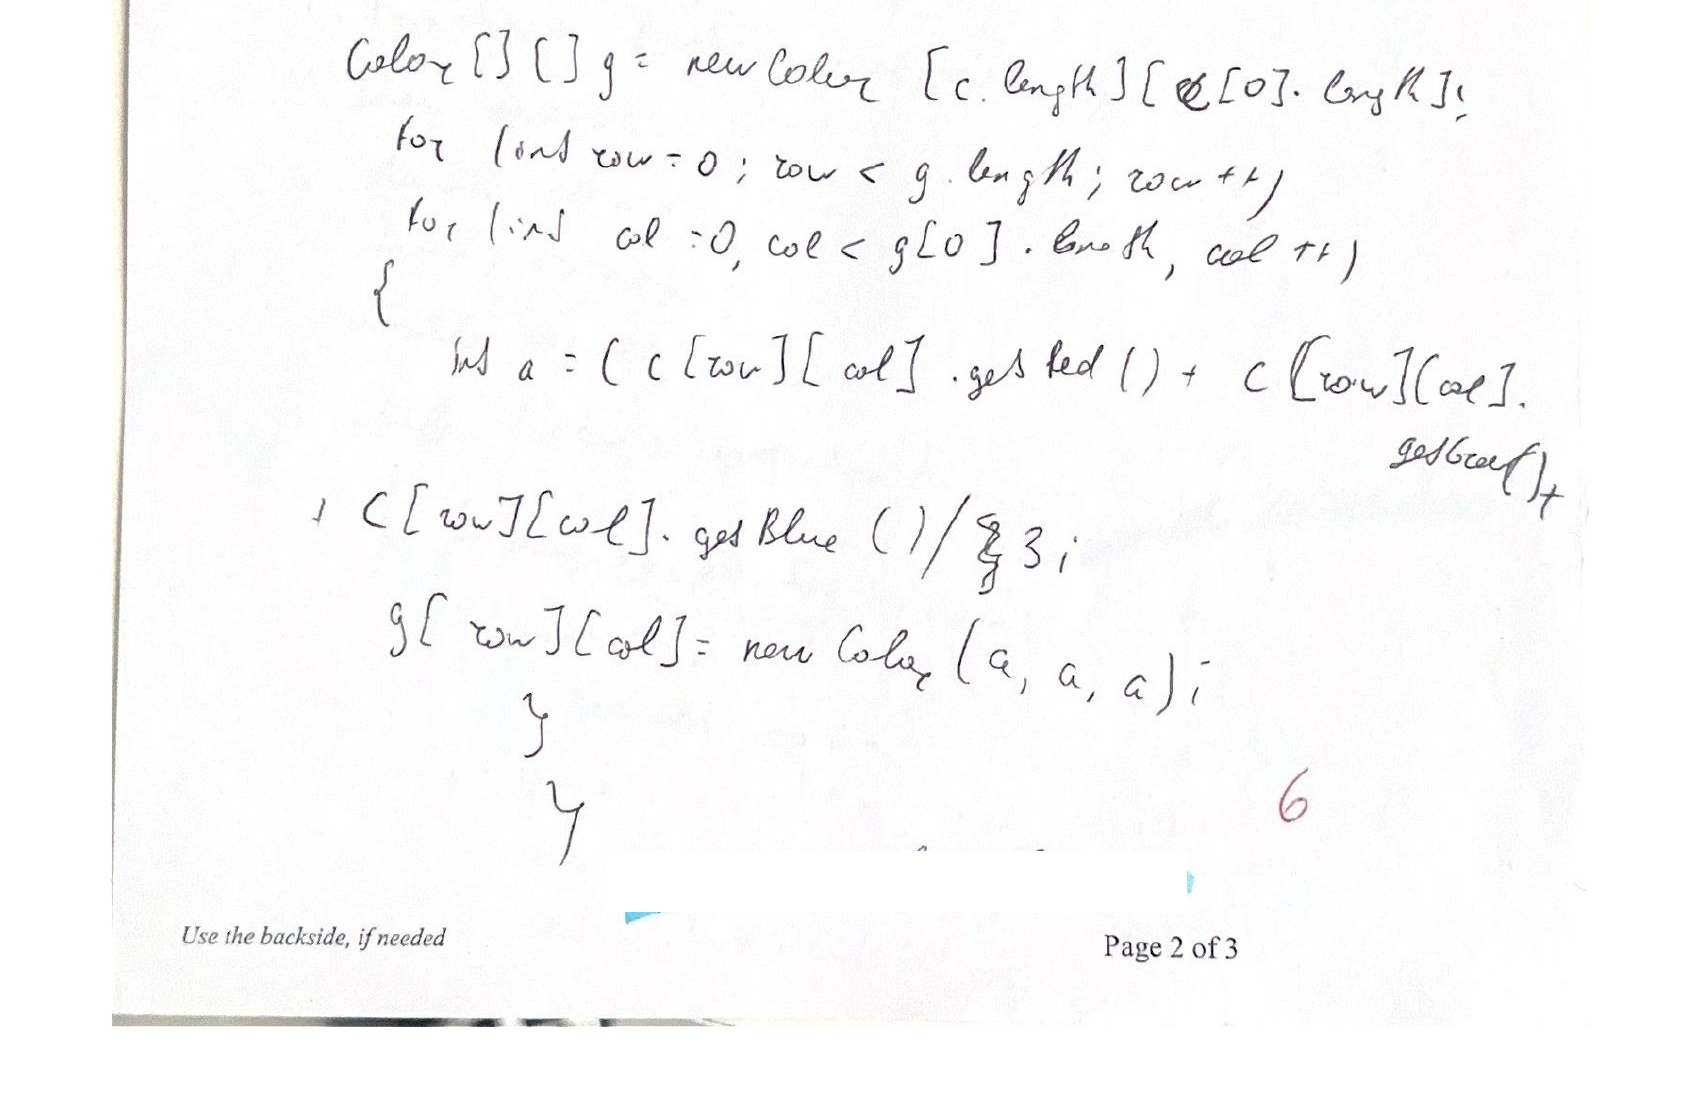 Color [] [] g = new Color [c.length] [c[0].length];
for (int row = 0; row < g.length; row++)
for (int col = 0, col < g[0].length, col ++)
{
int a = (c[row][col].get Red () + c[row][col].
getGreen()+
+ c[row][col].get Blue ()/ 3;
g[row][col] = new Color (a, a, a);
}
}
6
Use the backside, if needed
Page 2 of 3